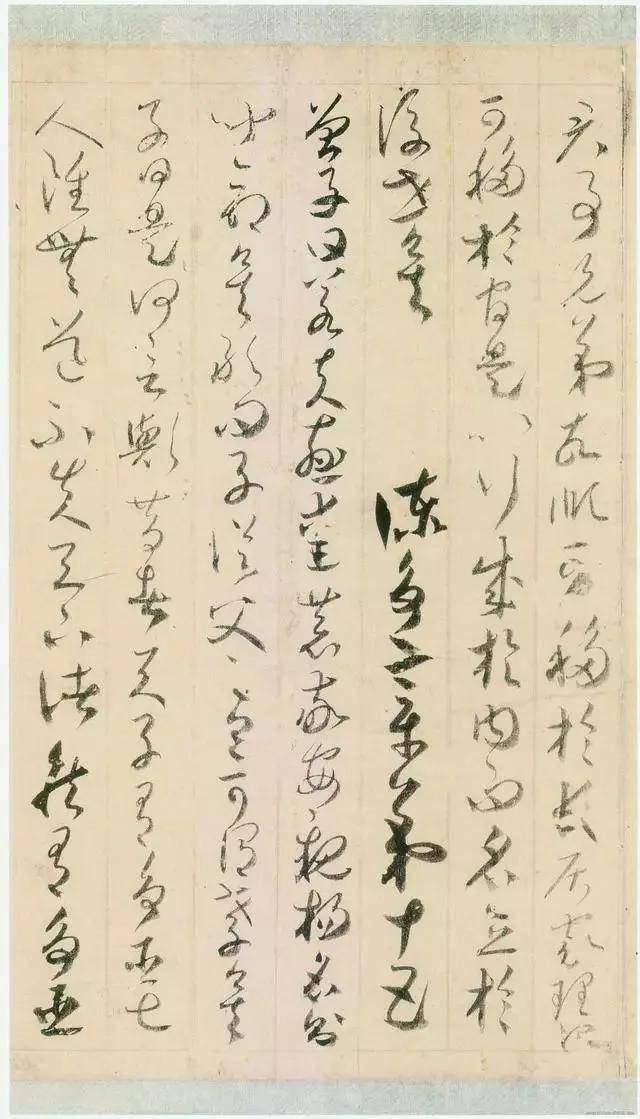 君事兄弟故順可移於長居家理治
可移於官是以行成於內而名立於
後世矣 諫爭章第十五
曾子曰若夫慈愛恭敬安親揚名則
聞命矣敢問子從父之令可謂孝矣
子曰是何言與昔者天子有爭臣七
人雖無道不失天下諸侯有爭臣